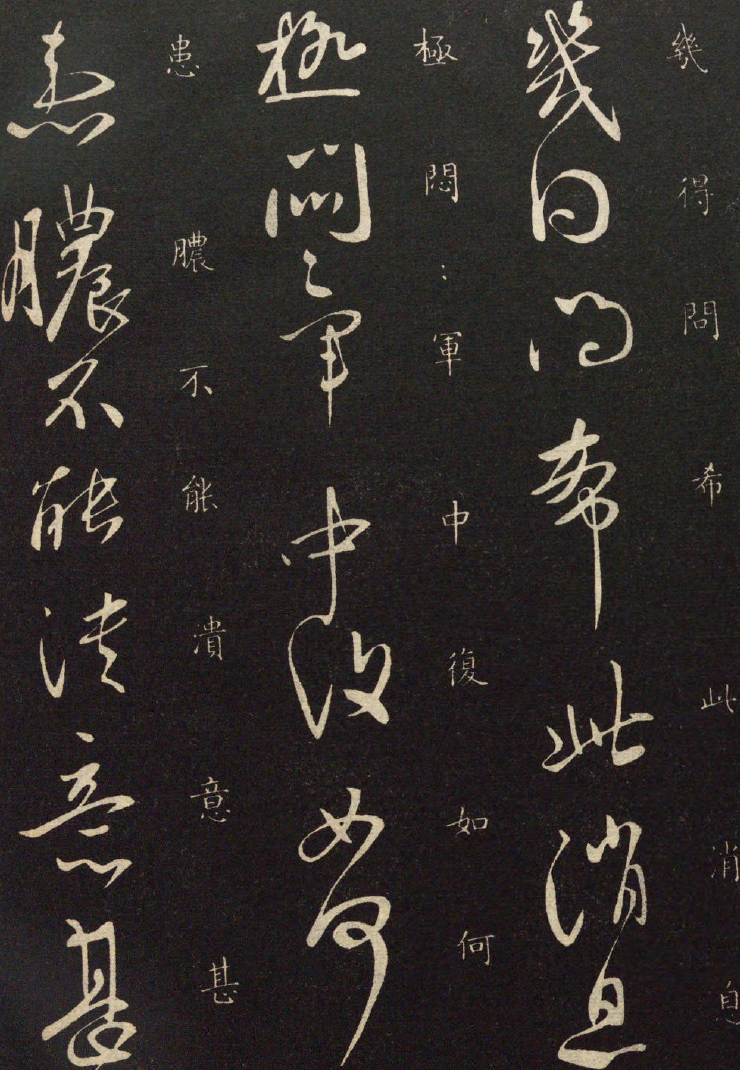 幾得問希此消息
幾日問希此消息
極悶：軍中復如何
極悶〻軍中復如何
患膿不能潰意甚
患膿不能潰意甚